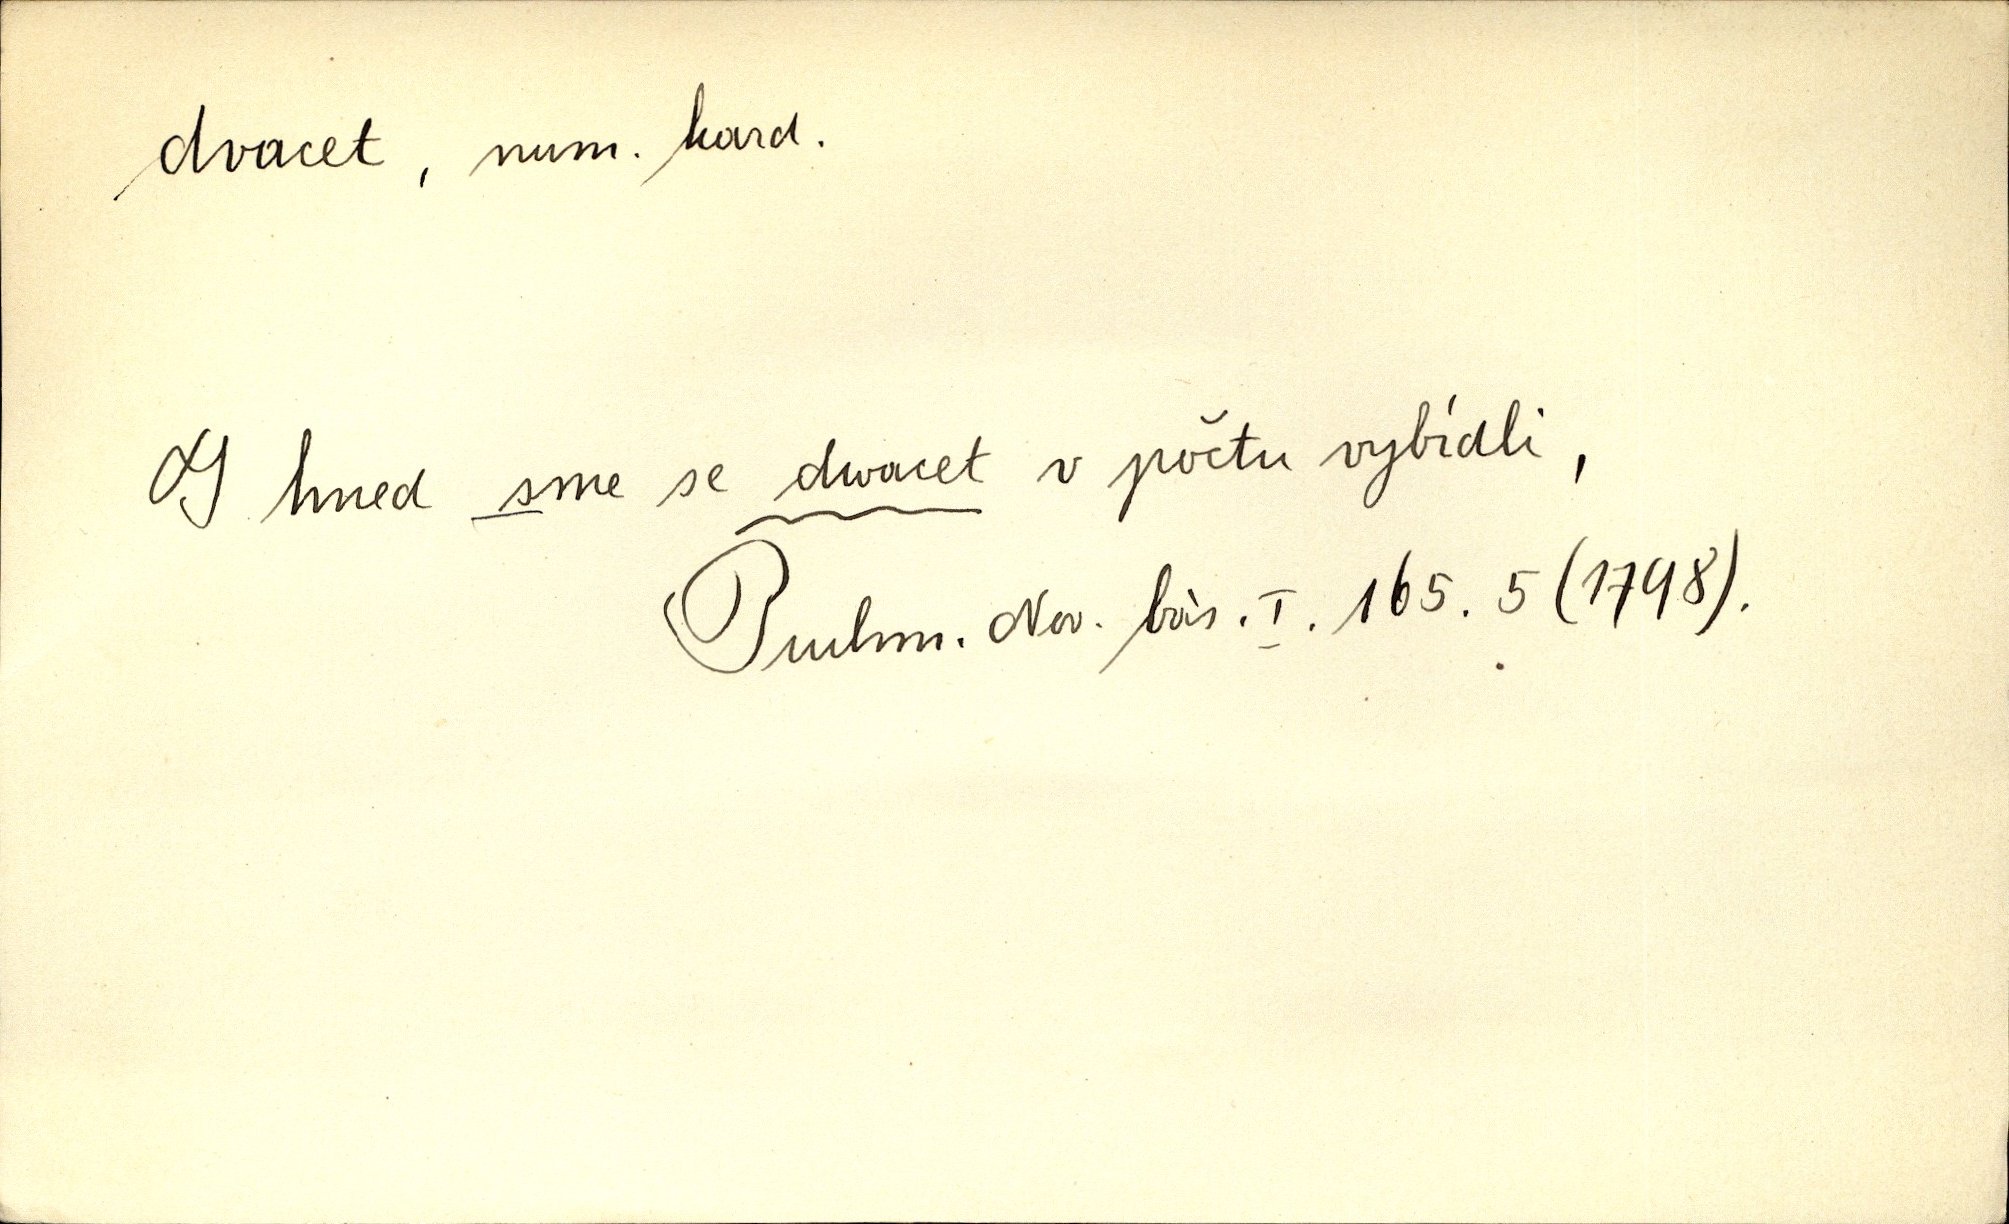 dvacet, num. kard.
Y hned sme se dwacet v počtu vybídli,
Puchm. Nov. bás. I. 165. 5 (1798).